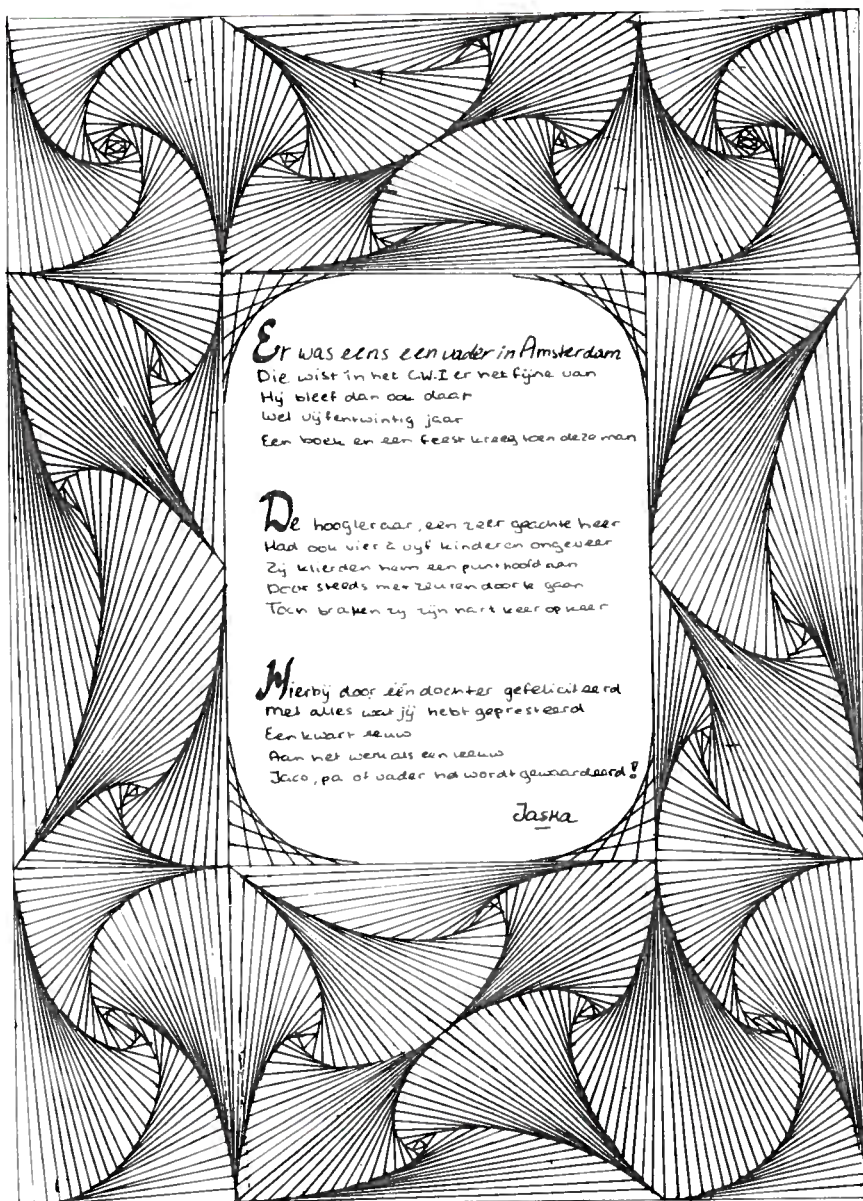 Er was eens een vader in Amsterdam
Die wist in het C.W.I er het fijne van
Hij bleef dan ook daar
Wel vijfentwintig jaar
Een boek en een feest kreeg toen deze man
De hoogleraar, een zeer geachte heer
Had ook vier à vijf kinderen ongeveer
Zij klierden hem een punthoofd aan
Door steeds met zeuren door te gaan
Toen braken zij zijn hart keer op keer
Hierbij door één dochter gefeliciteerd
Met alles wat jij hebt gepresteerd
Een kwart eeuw
Aan het werk als een leeuw
Jaco, pa of vader het wordt gewaardeerd!
Jaska